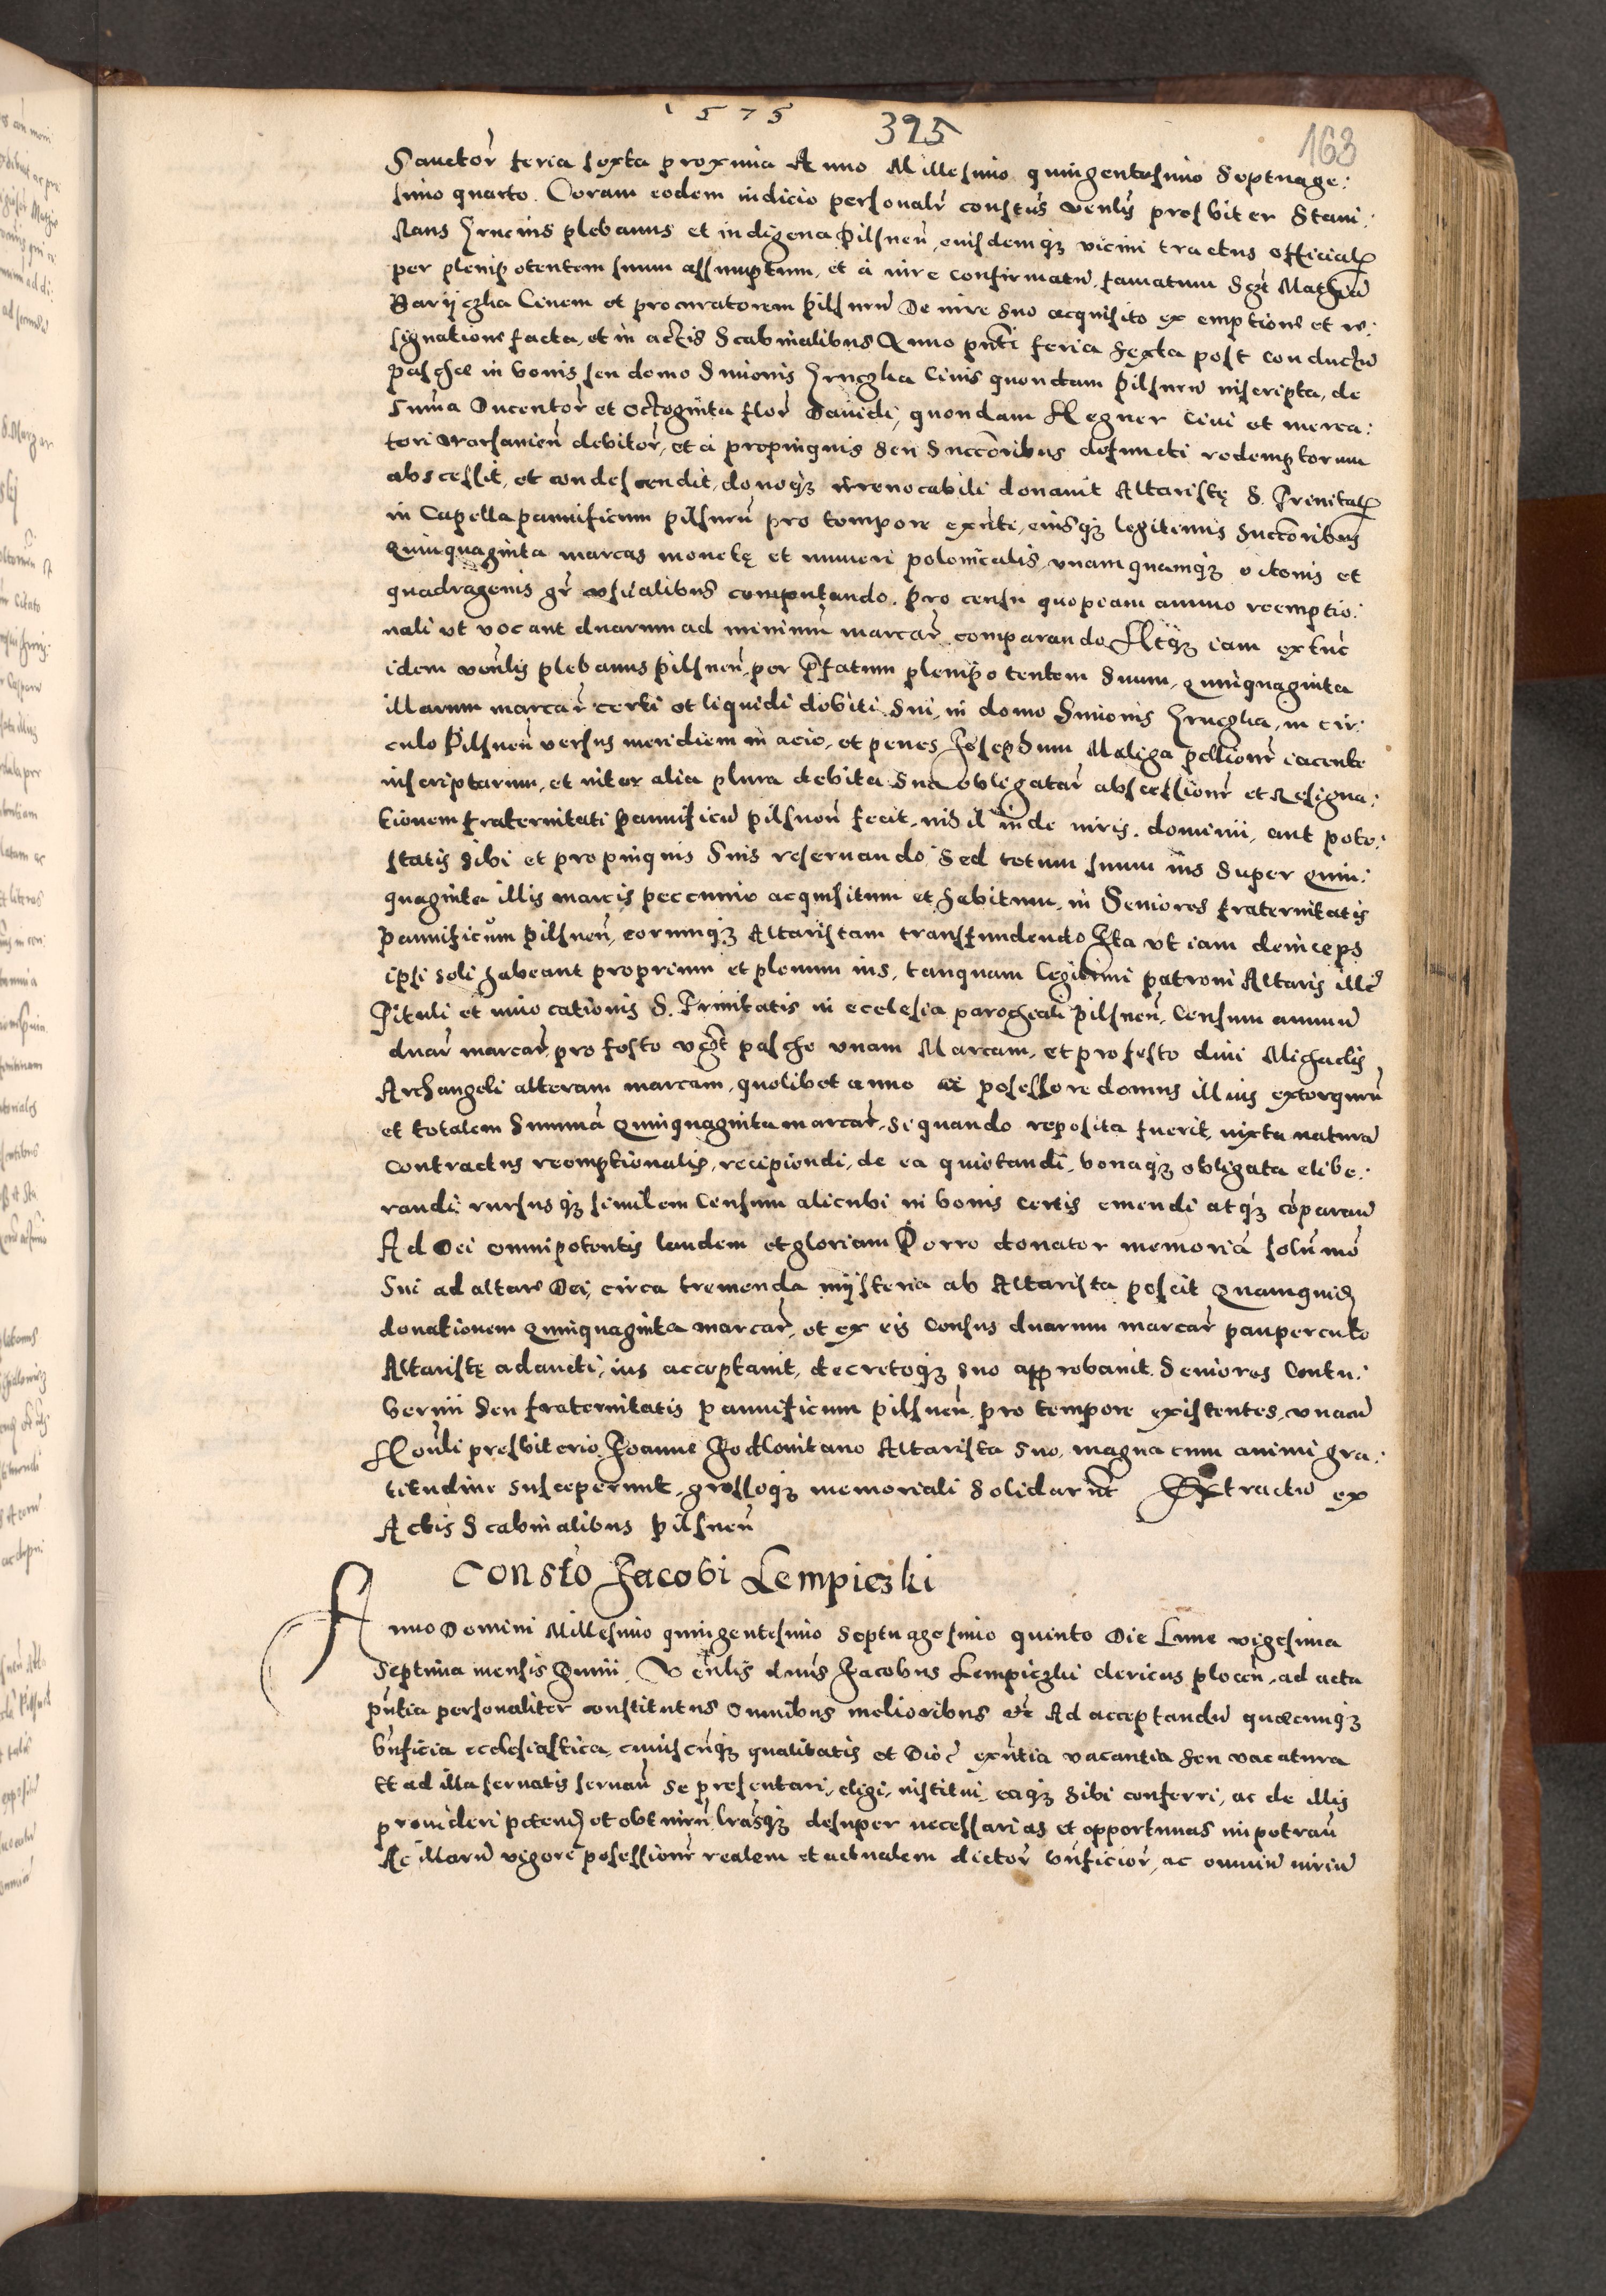 1575
325
163
Sanctor feria sexta proxima Anno Millesimo quingentesimo Septuage:
simo quarto. Coram eodem iudicio personalr constus venlis presbiter Stani:
slaus Hrucius plebanus et indigena Pilsnen, eiusdemqz vicini tractus official
per plenipotentem suum assumptum, et a iure confirmatu, famatum sczt Mathia
Baryczka Civem et procuratorem pilsnen De iure suo acquisito ex emptione et re:
signatione facta, et in actis Scabinalibus Anno pnti feria sexta post conductu
paschae in bonis seu domo Simonis Hruczka Civis quondam pilsnen inscripta, de
Suma Ducentor et Octoginta flor Dauidi, quondam Regner Civi et merca:
tori Varsavien debitor, et a propinquis seu succoribus defuncti redemptorum
abscessit, et condescendit, donoqz irrevocabili donavit Altaristę S. Trinitat
in Capella pannificum pilsnen pro tempore exnti, eiusqz legitimis succoribus
Quinquaginta marcas monetę et numeri polonicalis, vnamquamqz octonis et
quadragenis gr vsualibus computando. Pro censu quopiam annuo reemptio:
nali vt vocant duarum ad minimu marcar comparando Atqz iam extuc
idem venlis plebanus pilsnen, per pfatum plenipotentem suum, quinquaginta
illarum marcar certi et liquidi debiti sui, in domo Simonis Hruczka, in cir:
culo Pilsnen versus meridiem in acie, et penes Josephum Maliga pellione iacente
inscriptarum, et inter alia plura debita sua obligatar abscessione et Resigna:
tionem fraternitati Pannificu pilsnen fecit, nihil inde iuris, dominii, aut pote:
statis sibi et propinquis suis reservando, Sed totum suum ius super quin:
quaginta illis marcis peccunie acquisitum et habitum, in Seniores fraternitatis
Pannificum Pilsnen, eorumqz Altaristam transfundendo Ita vt iam deinceps
ipsi soli habeant proprium et plenum ius, tanquam legitimi patroni Altaris illi
Tituli et inuocationis S. Trinitatis in ecclesia parocheali Pilsnen, Censum annuu
duar marcar, pro festo vczt pasche vnam Marcam, et pro festo diui Michaelis
Archangeli alteram marcam, quolibet anno a posessore domus illius extorquen
et totalem Summa Quinquaginta marcar, si quando reposita fuerit, iuxta natura
contractus reemptionalis, recipiendi, de ea quietandi, bonaqz obligata elibe:
randi: rursusqz similem Censum alicubi in bonis certis emendi atqz coparan
Ad Dei omnipotentis laudem et gloriam Porro donator memoria solumo
Sui ad altare Dei, circa tremenda mysteria ab Altarista poscit Quamquid
donationem Quinquaginta marcar, et ex eis Census duarum marcar pauperculo
Altaristę adaucti, ius acceptavit, decretoqz suo approbavit. Seniores Contu:
bernii seu fraternitatis pannificum pilsnen, pro tempore existentes, vnacu
Honli presbiterio Joanne Jodlovitano Altarista suo, magna cum animi gra:
titudine susceperunt, grossoqz memoriali Solidarnt Extractu ex
Actis Scabinalibus Pilsnen
Consto Jacobi Lempiczki
Anno Domini Millesimo quingentesimo Septuagesimo quinto Die Lune vigesima
Septima mensis Junii. Venlis dnus Jacobus Lempiczki clericus plocen, ad acta
pntia personaliter constitutus Omnibus melioribus etc Ad acceptandu quecunqz
bnficia ecclesiastica, cuiuscunqz qualitatis et Dioc exntia vacantia seu vacatura
Et ad illa servatis servan se presentari, eligi, institui, eaqz sibi conferri, ac de illis
provideri petend et obtinen, lrasqz desuper necessarias et opportunas impetran
Ac illaru vigore posessione realem et actualem dictor bnficior, ac omniu iuriu